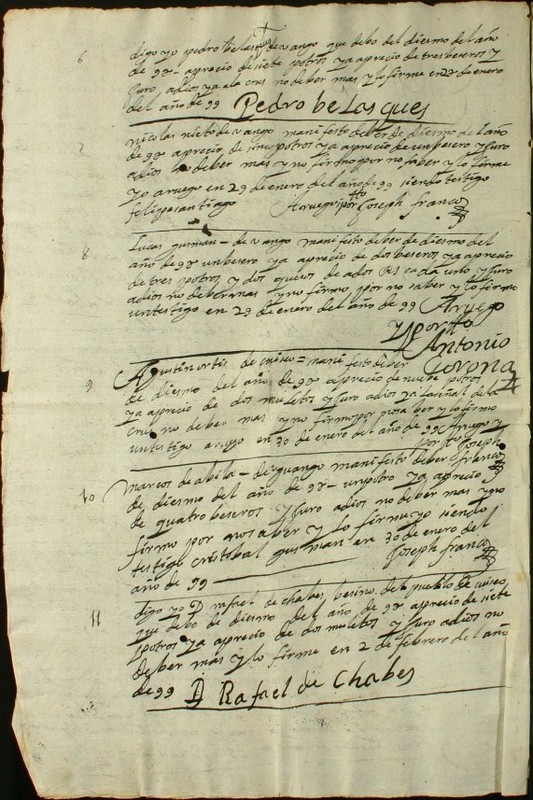 6
digo yo pedro belasques de vango que debo del diesmo del año
de 98 - aprecio de siete potros ya aprecio de tres beseros y
juro adios ya la crus no deber mas y lo firme en 28 de enero
del año de 99 Pedro belasques
7
nicolas nieto de vango manifesto deber de diesmo del año
de 98 aprecio de sinco potros ya aprecio de un besero y juro
adios no deber mas y no firmo por no saber y lo firme
yo aruego en 29 de enero del año de 99 siendo testigo
felipe santiago Aruego y por tto Joseph franco
8
Lucas gusman - de vango manifesto deber de diesmo del
año de 98 un besero ya aprecio de dos beseros ya aprecio
de tres potros y dos quesos de ados Rs cada uno y juro
adios no deber mas y no firmo por no saber y lo firmo
un testigo en 29 de enero del año de 99 Aruego
y por tto
Antonio
Corona
9
Agustin ortis de cuiseo = manifesto deber
de diesmo del año de 98 aprecio de nuebe potros
ya aprecio de dos muletos y juro adios ya la señal de la
crus no deber mas y no firmo por no saber y lo firmo
un testigo aruego en 30 de enero del año de 99 Aruego y
por tto Joseph
franco
10
Marcos de abila - de guango manifesto deber
de diesmo del año de 98 - un potro ya aprecio
de quatro beseros y juro adios no deber mas y no
firmo por no saber y lo firme yo siendo
testigo cristobal gusman en 30 de enero del
año de 99 Joseph franco
11
digo yo D rafael de chabes besino del pueblo de cuiseo
que debo de diesmo del año de 98 aprecio de siete
potros ya aprecio de dos muletos y juro adios no
deber mas y lo firme en 2 de febrero del año
de 99 D Rafael de Chabes